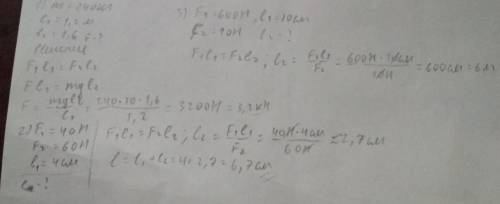 1) m = 240кг
l₁ = 1,2 м
l₂ = 1,6 F-?
Решение
F₁l₁ = F₂l₂
Fl₁ = mgl₂
F = mgl₂/l₁ = 240·10·1,6/1,2 = 3200Н = 3,2кН
2) F₁ = 40Н
F₂ = 60Н
l₁ = 4см
-?
F₁l₁ = F₂l₂; l₂ = F₁l₁/F₂ = 40Н·4см/60Н ≈ 2,7см
l = l₁+l₂ = 4+2,7 = 6,7см
3) F₁ = 600Н, l₁ = 10см
F₂ = 10Н l₂-?
F₁l₁ = F₂l₂; l₂ = F₁l₁/F₂ = 600Н·10см/10Н = 600см = 6м